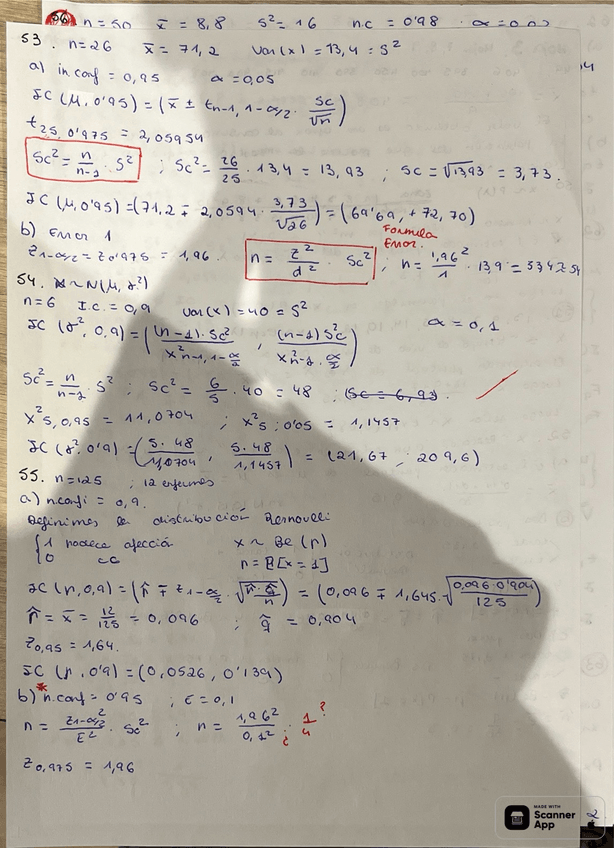 n = 50 x̄ = 8,8 S² = 16 n.c = 0'98 . α = 0,02
53. n=26 x̄ = 71,2 Var(x) = 13,4 = S²
a) in.conf = 0,95 α = 0,05
IC (μ, 0'95) = (x̄ ± t n-1, 1-α/2 · Sc/√n)
t 25, 0'975 = 2,05954
Sc² = n/n-1 · S² ; Sc² = 26/25 · 13,4 = 13,93 ; Sc = √13,93 = 3,73.
IC (μ, 0'95) = (71,2 ∓ 2,0594 · 3,73/√26) = (69'69, + 72,70)
b) Error 1
Formula Error.
z 1-α/2 = z 0'975 = 1,96. n = z²/d² · Sc² ; n = 1,96²/1 · 13,9 = 53,4 ≈ 54
54. X ~ N(μ, σ²)
n=6 I.C. = 0,9 Var(x) = 40 = S²
IC (σ², 0,9) = ((n-1)·Sc²/x² n-1, 1-α/2 , (n-1) S²c/x² n-1, α/2) α = 0,1
Sc² = n/n-1 · S² ; Sc² = 6/5 · 40 = 48 ; (Sc = 6,93).
x² 5, 0,95 = 11,0704 ; x² 5; 0'05 = 1,1457
IC (σ², 0'9) = (5·48/11,0704 , 5·48/1,1457) = (21,67 ; 209,6)
55. n=125 ; 12 enfermos
a) n.confi = 0,9.
Definimos la distribución Bernoulli
{1 padece afección x ~ Be (p)
0 cc p = P[x = 1]
IC (p, 0,9) = (p̂ ∓ z 1-α/2 · √p̂·q̂/n) = (0,096 ∓ 1,645 · √0,096·0'904/125)
p̂ = x̄ = 12/125 = 0,096 ; q̂ = 0,904
z 0,95 = 1,64.
IC (p, 0'9) = (0,0526, 0'139)
* b) n.conf = 0'95 ; E = 0,1
n = z 1-α/2²/E² · Sc² ; n = 1,96²/0,1² · ¿ 1/4 ?
z 0,975 = 1,96
MADE WITH
Scanner
App
2